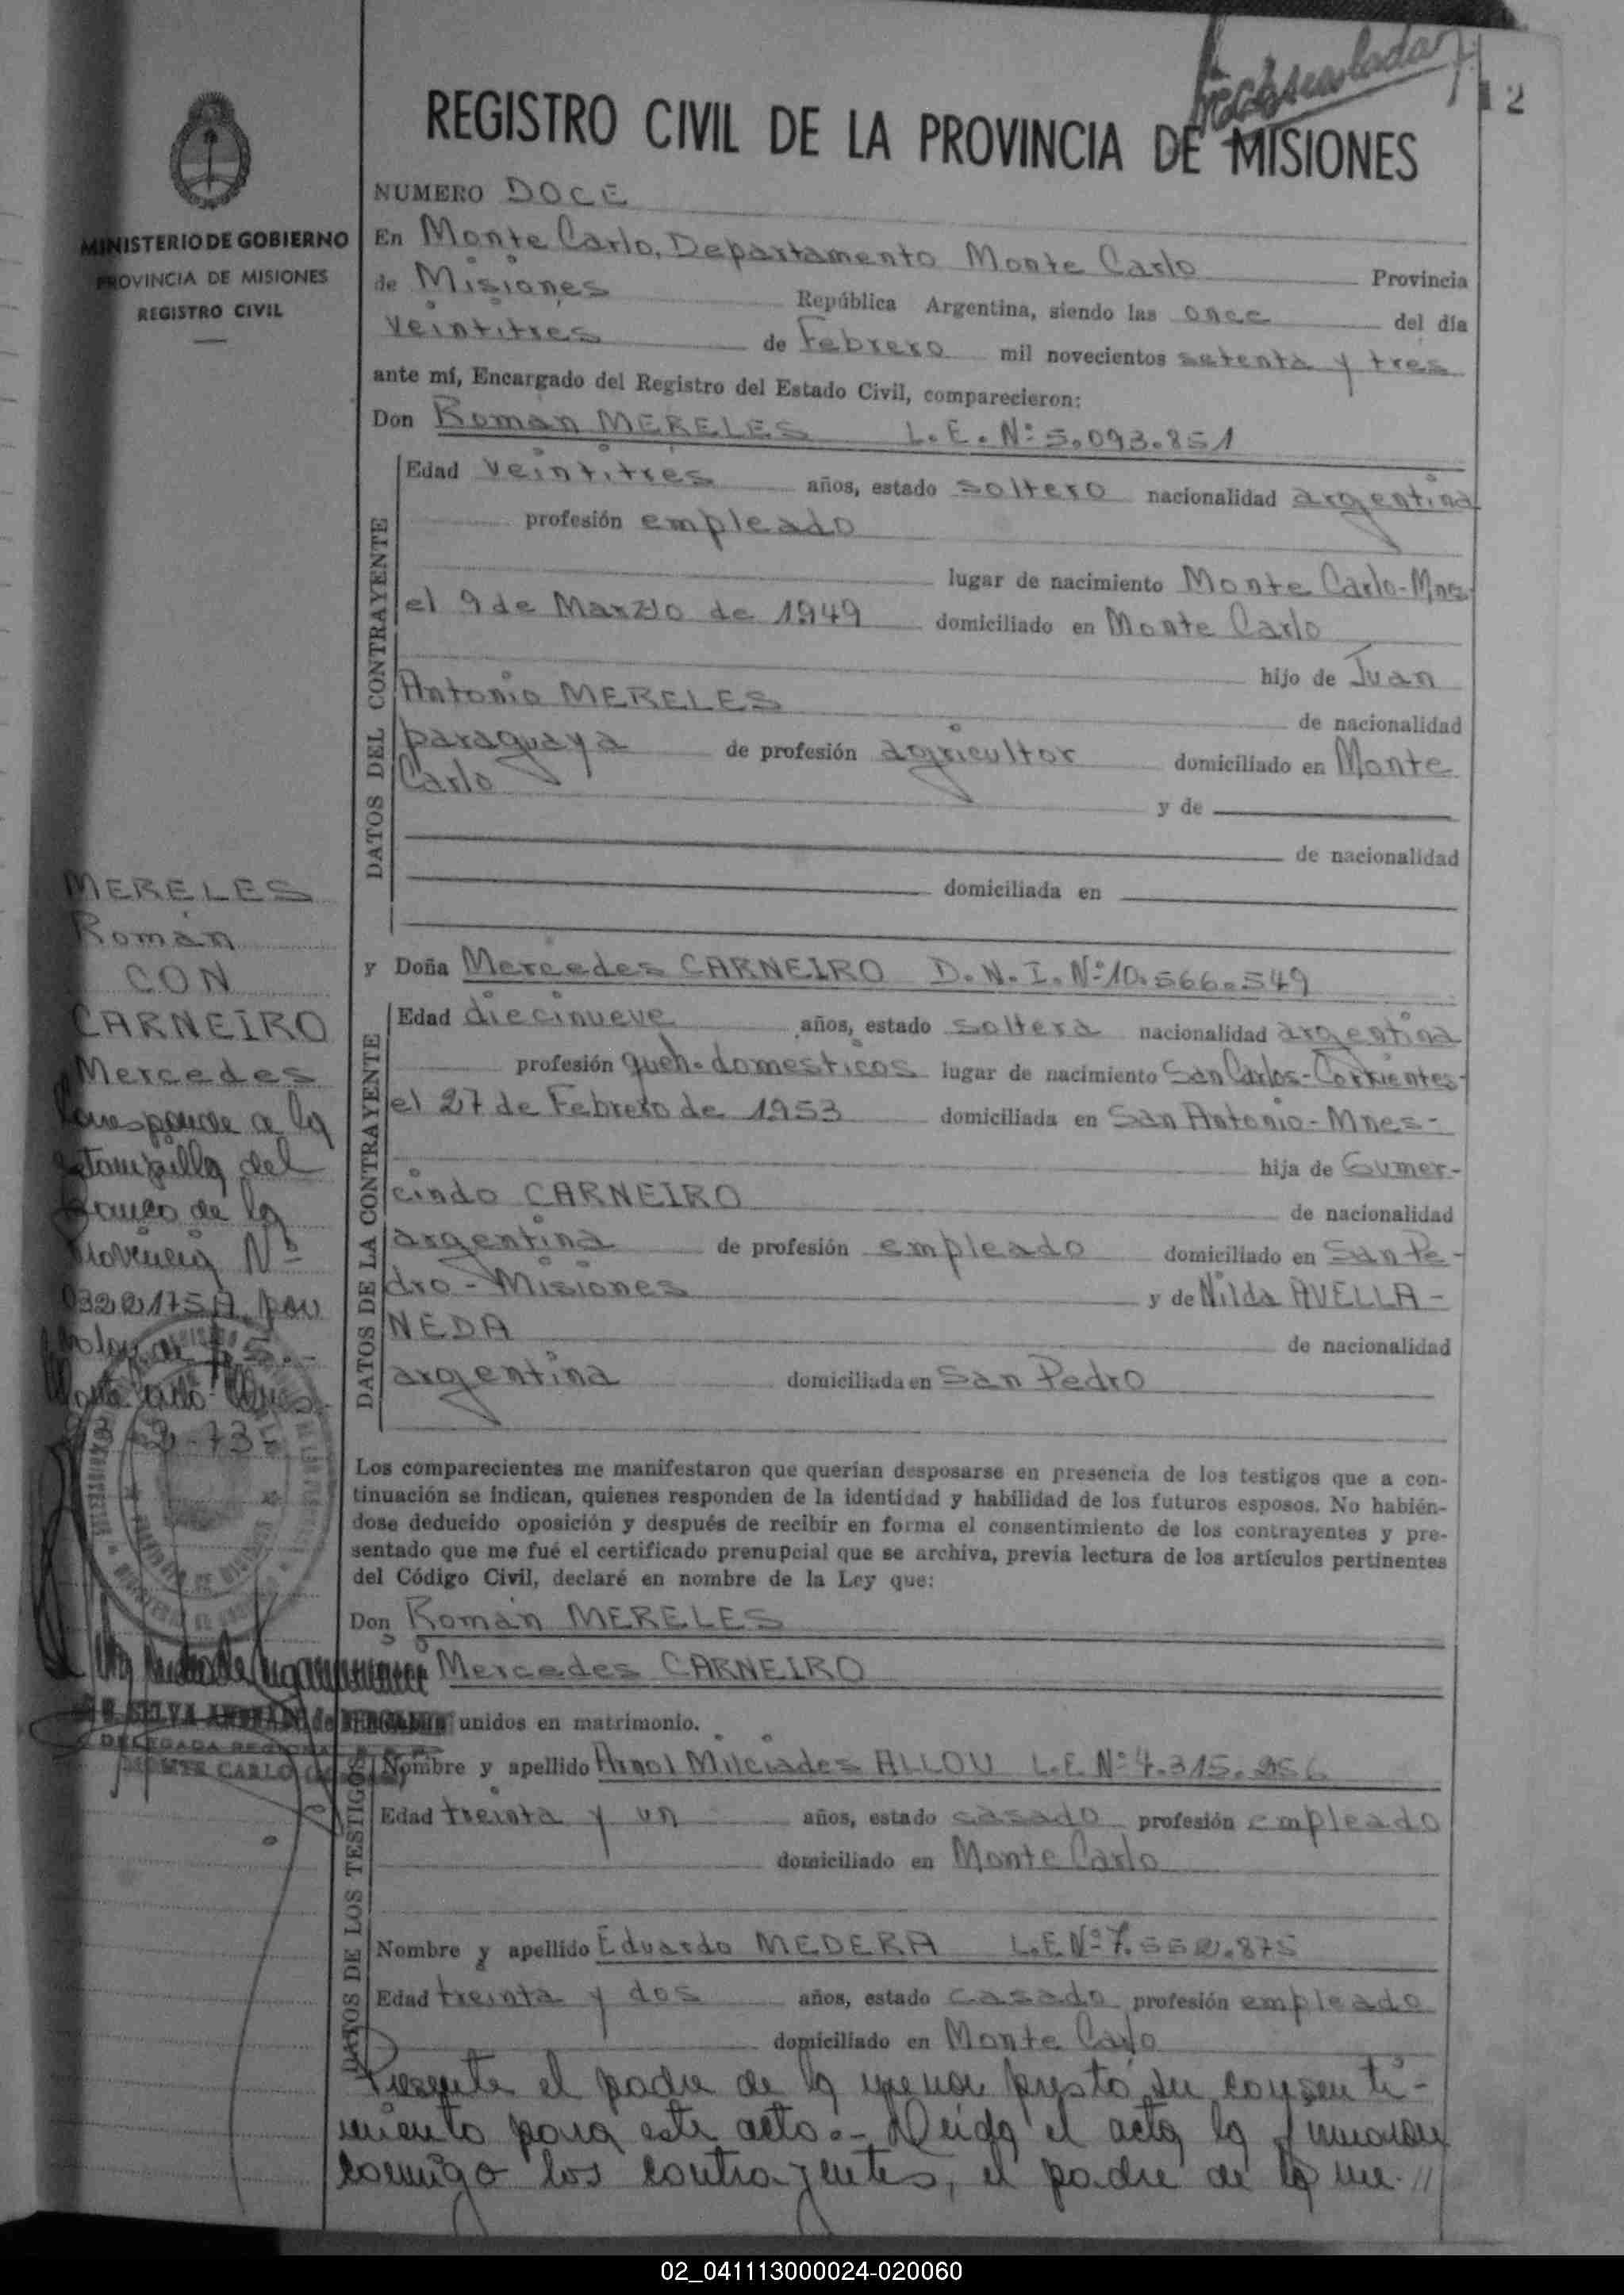 12
REGISTRO CIVIL DE LA PROVINCIA DE MISIONES
MINISTERIO DE GOBIERNO
PROVINCIA DE MISIONES
REGISTRO CIVIL
NUMERO DOCE
En Monte Carlo, Departamento Monte Carlo Provincia
de Misiones República Argentina, siendo las once del día
veintitres de Febrero mil novecientos setenta y tres
ante mí, Encargado del Registro del Estado Civil, comparecieron:
Don Roman MERELES L.E. Nº 5.093.851
DATOS DEL CONTRAYENTE
Edad veintitres años, estado soltero nacionalidad argentina
profesión empleado
lugar de nacimiento Monte Carlo-Mnes
el 9 de Marzo de 1949 domiciliado en Monte Carlo
hijo de Juan
Antonio MERELES de nacionalidad
paraguaya de profesión agricultor domiciliado en Monte
Carlo y de
de nacionalidad
domiciliada en
MERELES
Román
CON
CARNEIRO
Mercedes
Corresponde a la
estampilla del
Banco de la
Provincia Nº
por
valor de $ 5.-
Monte Carlo Mnes
y Doña Mercedes CARNEIRO D.N.I. Nº 10.566.549
DATOS DE LA CONTRAYENTE
Edad diecinueve años, estado soltera nacionalidad argentina
profesión queh. domesticos lugar de nacimiento San Carlos-Corrientes-
el 27 de Febrero de 1953 domiciliada en San Antonio-Mnes-
hija de Gumer-
cindo CARNEIRO de nacionalidad
argentina de profesión empleado domiciliado en San Pe-
dro-Misiones y de Nilda AVELLA-
NEDA de nacionalidad
argentina domiciliada en San Pedro
Los comparecientes me manifestaron que querían desposarse en presencia de los testigos que a con-
tinuación se indican, quienes responden de la identidad y habilidad de los futuros esposos. No habién-
dose deducido oposición y después de recibir en forma el consentimiento de los contrayentes y pre-
sentado que me fué el certificado prenupcial que se archiva, previa lectura de los artículos pertinentes
del Código Civil, declaré en nombre de la Ley que:
Don Román MERELES
Mercedes CARNEIRO
unidos en matrimonio.
DELEGADA
MONTE CARLO
DATOS DE LOS TESTIGOS
Nombre y apellido Arnol Milciades ALLOU L.E. Nº 4.315.256
Edad treinta y un años, estado casado profesión empleado
domiciliado en Monte Carlo
Nombre y apellido Eduardo MEDERA L.E Nº 7.552.875
Edad treinta y dos años, estado casado profesión empleado
domiciliado en Monte Carlo
Presente el padre de la menor prestó su consenti-
miento para este acto.- Leída el acta la firmaron
conmigo los contrayentes, el padre de la me-//
02_041113000024-020060